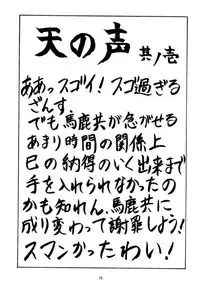 天の声 其ノ壱
ああっスゴイ!スゴ過ぎる
ざんす。
でも、馬鹿共が急がせる
あまり時間の関係上
己の納得のいく出来まで
手を入れられなかったの
かも知れん、馬鹿共に
成り変わって謝罪しよう!
スマンかったわい!